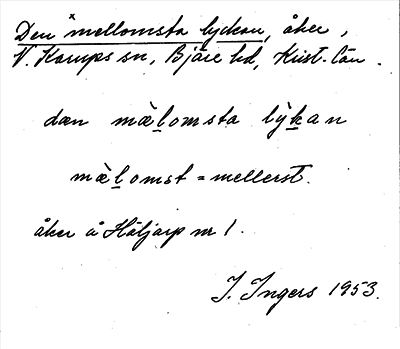 Den mellomsta lyckan, åker,
V. Karups sn, Bjäre hd, Krist. län.
dæn mæ̀lomsta lỳkan
mæ̀lomst = mellerst.
åker å Håljarp nr 1.
J. Ingers 1953.